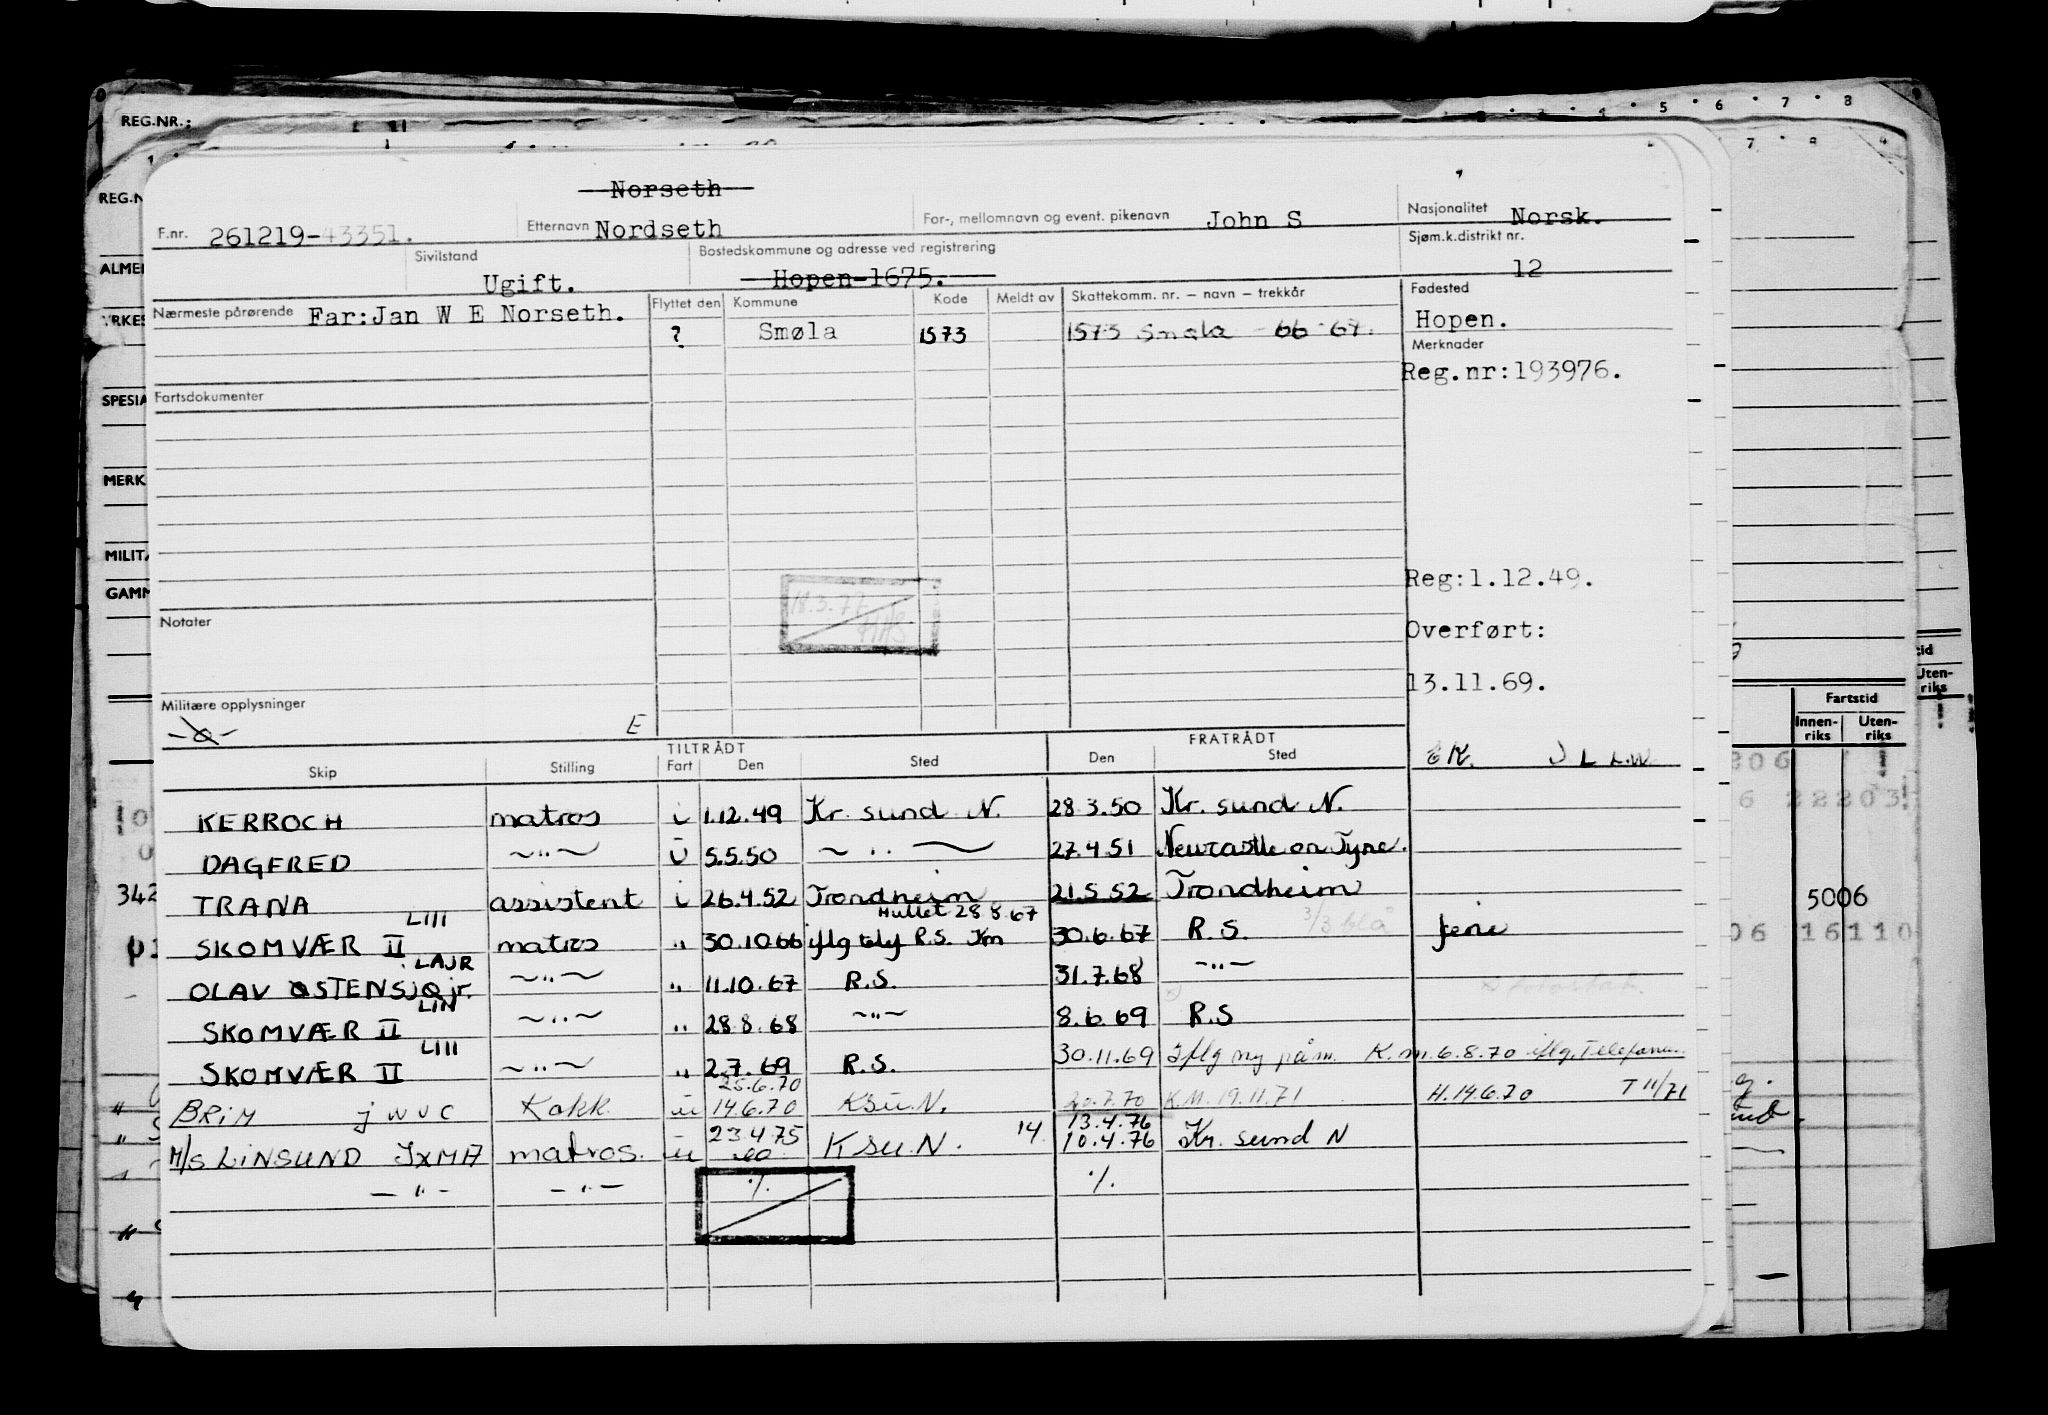 REG.NR.:
4 5 6 7 8
7 8 9
REG.N
ALMEN
YRKES
SPESIA
MERK
MILITÆ
GAMM
Norseth
F.nr. 261219-43351. Etternavn Nordseth For-, mellomnavn og event. pikenavn John S Nasjonalitet Norsk.
Sivilstand Ugift. Bostedskommune og adresse ved registrering Hopen-1675. Sjøm.k.distrikt nr. 12
Nærmeste pårørende Far:Jan W E Norseth. Flyttet den Kommune Kode Meldt av Skattekomm. nr. – navn – trekkår Fødested
? Smøla 1573 1573 Smøla 66 67. Hopen.
Merknader
Reg.nr:193976.
Fartsdokumenter
Reg:1.12.49.
18.3.77
Notater
Overført:
13.11.69.
Militære opplysninger
E
TILTRÅDT FRATRÅDT
Skip Stilling Fart Den Sted Den Sted
KERROCH matros i 1.12.49 Kr. sund N. 28.3.50 Kr. sund N.
DAGFRED ~"~ U 5.5.50 ~ " ~ 27.4.51 Newcastle on Tyne.
TRANA assistent i 26.4.52 Trondheim 21.5.52 Trondheim
Hullet 28.8.67
SKOMVÆR II LIII matros " 30.10.66 iflg tlf R.S. Km 30.6.67 R.S. 3/3 blå ferie
OLAV ØSTENSJØ jr. LAJR ~"~ " 11.10.67 R.S. 31.7.68 -"-
SKOMVÆR II LIN ~"~ " 28.8.68 ~"~ 8.6.69 R.S
SKOMVÆR II LIII ~"~ " 2.7.69 R.S. 30.11.69 Iflg ny påm. K.m. 6.8.70 iflg. Telefonen.
25.6.70
BRIM JWVC Kokk u 14.6.70 KSU.N. 20.7.70 K.M. 19.11.71 H.14.6.70 T 11/71
13.4.76
M/S LINSUND JXMA matros. u 23.4.75 KSU N. 14. 10.4.76 Kr. sund N
- " - - " - ./. ./.
Fartstid
Innen-riks Uten-riks
5006
16110
342